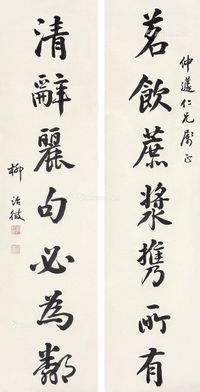 仲蘧仁兄属正
茗飲蔗漿携所有
清辭麗句必為鄰
柳詒徵